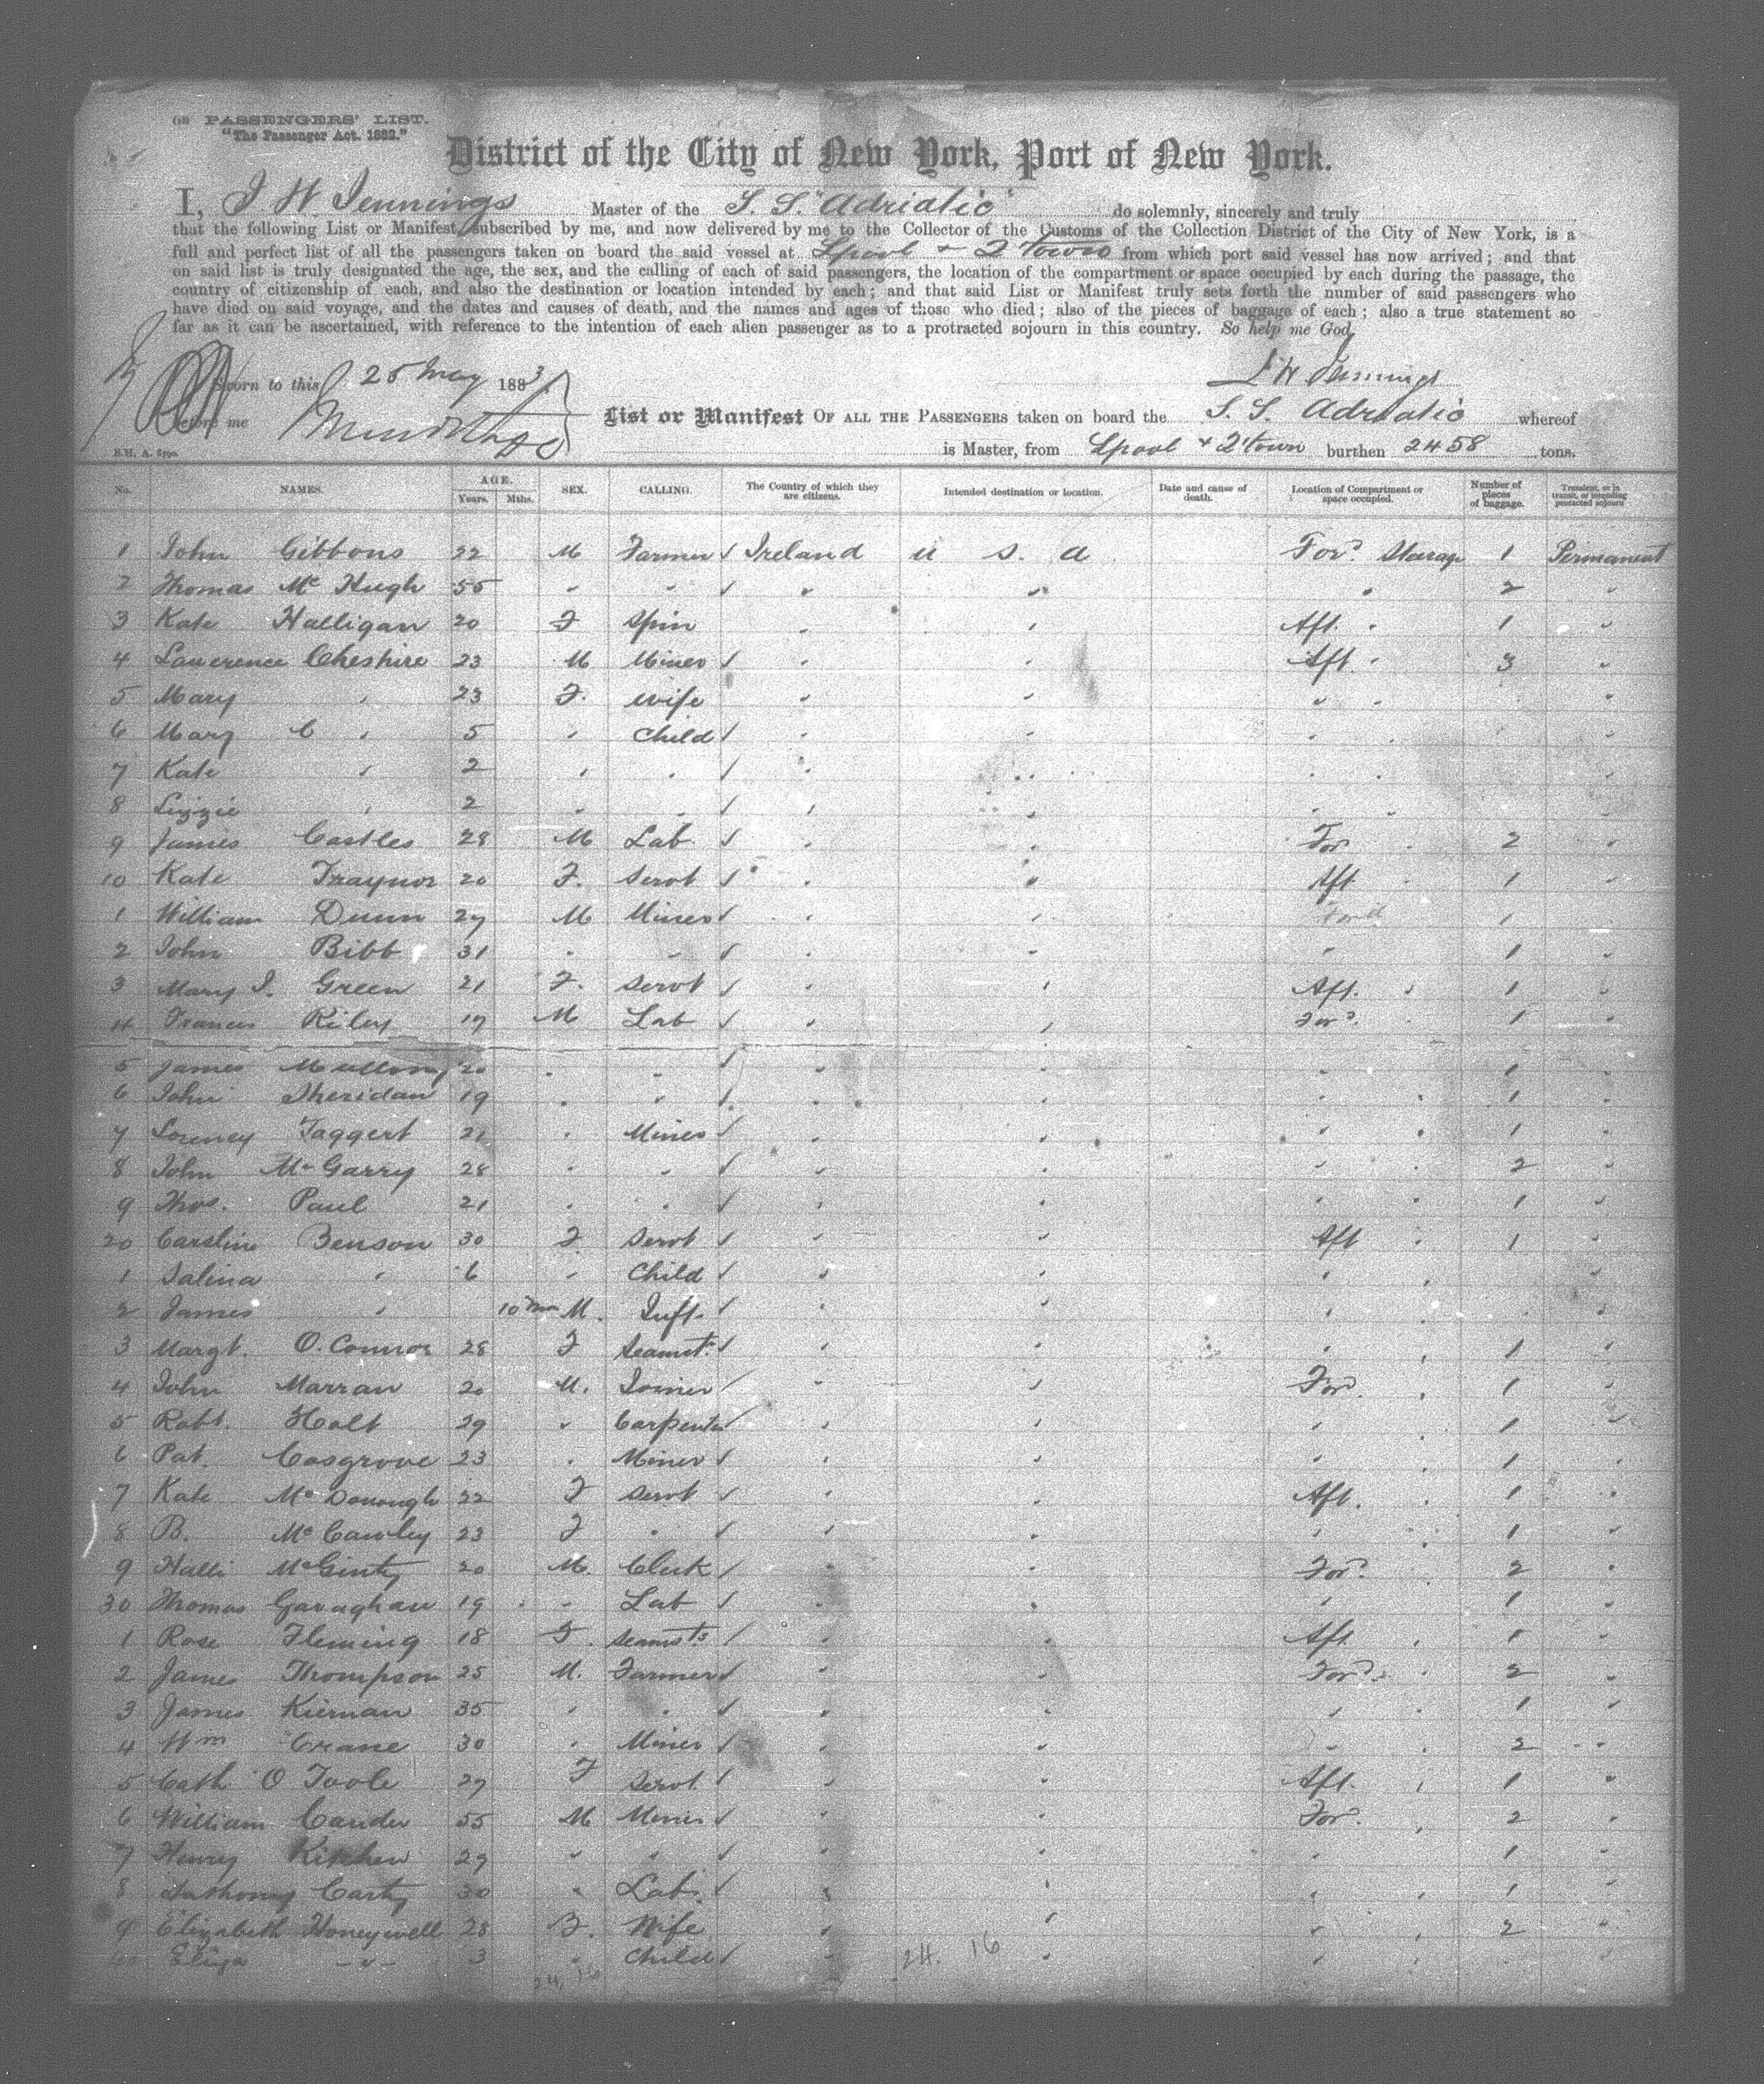 (18) PASSENGERS' LIST.
"The Passenger Act. 1882."
District of the City of New York, Port of New York.
I, J W Jennings Master of the S. S. "Adriatic" do solemnly, sincerely and truly
that the following List or Manifest, subscribed by me, and now delivered by me to the Collector of the Customs of the Collection District of the City of New York, is a
full and perfect list of all the passengers taken on board the said vessel at Lpool & Q'town from which port said vessel has now arrived; and that
on said list is truly designated the age, the sex, and the calling of each of said passengers, the location of the compartment or space occupied by each during the passage, the
country of citizenship of each, and also the destination or location intended by each; and that said List or Manifest truly sets forth the number of said passengers who
have died on said voyage, and the dates and causes of death, and the names and ages of those who died; also of the pieces of baggage of each; also a true statement so
far as it can be ascertained, with reference to the intention of each alien passenger as to a protracted sojourn in this country. So help me God
Sworn to this 25 May 1883 J W Jennings
before me List or Manifest OF ALL THE PASSENGERS taken on board the S. S. Adriatic whereof
is Master, from Lpool & Q'town burthen 2458 tons.
No. NAMES. AGE. Years. Mths. SEX. CALLING. The Country of which they are citizens. Intended destination or location. Date and cause of death. Location of Compartment or space occupied. Number of pieces of baggage. Transient, or in transit, or intending protracted sojourn
1 John Gibbons 22 M Farmer ✓ Ireland U S. A For'd Steerage 1 Permanent
2 Thomas Mc Hugh 55 " " ✓ " " " 2 "
3 Kate Halligan 20 F Spin " " Aft. " 1 "
4 Lawerence Cheshire 23 M Miner ✓ " " Aft " 3 "
5 Mary " 23 F. Wife " " " " "
6 Mary C " 5 " Child ✓ " " " " "
7 Kate " 2 " " ✓ " " " " "
8 Lizzie " 2 " " ✓ " " " " "
9 James Castles 28 M Lab ✓ " " For " 2 "
10 Kate Traynor 20 F. Servt ✓ " " Aft " 1 "
1 William Dunn 27 M Miner ✓ " " For'd 1 "
2 John Bibb 31 " " ✓ " " " 1 "
3 Mary J. Green 21 F. Servt ✓ " " Aft. " 1 "
4 Francis Riley 19 M Lab ✓ " " For'd " 1 "
5 James 20 " " ✓ " " " 1 "
6 John Sheridan 19 " " ✓ " " " " 1 "
7 Taggert 21 " Miner ✓ " " " " 1 "
8 John McGarry 28 " " ✓ " " " " 2 "
9 Thos. Paul 21 " " ✓ " " " " 1 "
20 Caroline Benson 30 F Servt ✓ " " Aft " 1 "
1 Salina " 6 " Child ✓ " " " " "
2 James " 10 mos M. Inft. ✓ " " " " "
3 Margt. O.Connor 28 F Seamst. ✓ " " " " 1 "
4 John Marran 20 M. Joiner ✓ " " For'd " 1 "
5 Robt. Holt 29 " Carpenter ✓ " " " " 1 "
6 Pat. Cosgrove 23 " Miner ✓ " " " " 1 "
7 Kate McDonough 22 F Servt ✓ " " Aft. " 1 "
8 B. McCawley 23 F " ✓ " " " " 1 "
9 McGinty 20 M. Clerk ✓ " " For'd " 2 "
30 Thomas Gavaghan 19 " Lab ✓ " " " " 1 "
1 Rose Fleming 18 F. Seamsts ✓ " " Aft " 1 "
2 James Thompson 25 M. Farmer ✓ " " For'd " 2 "
3 James Kiernan 35 " " ✓ " " " " 1 "
4 Wm Crane 30 " Miner ✓ " " " " 2 "
5 Cath O Toole 27 F Servt. ✓ " " Aft. " 1 "
6 William 55 M Miner ✓ " " For'd " 2 "
7 Henry Kitchen 29 " " ✓ " " " 1 "
8 Anthony Carty 30 " Lab. ✓ " " " " 1 "
9 Elizabeth Honeywell 28 F. Wife " " " " 2 "
40 Eliza " 3 " Child ✓ " " " " "
24. 16 24. 16